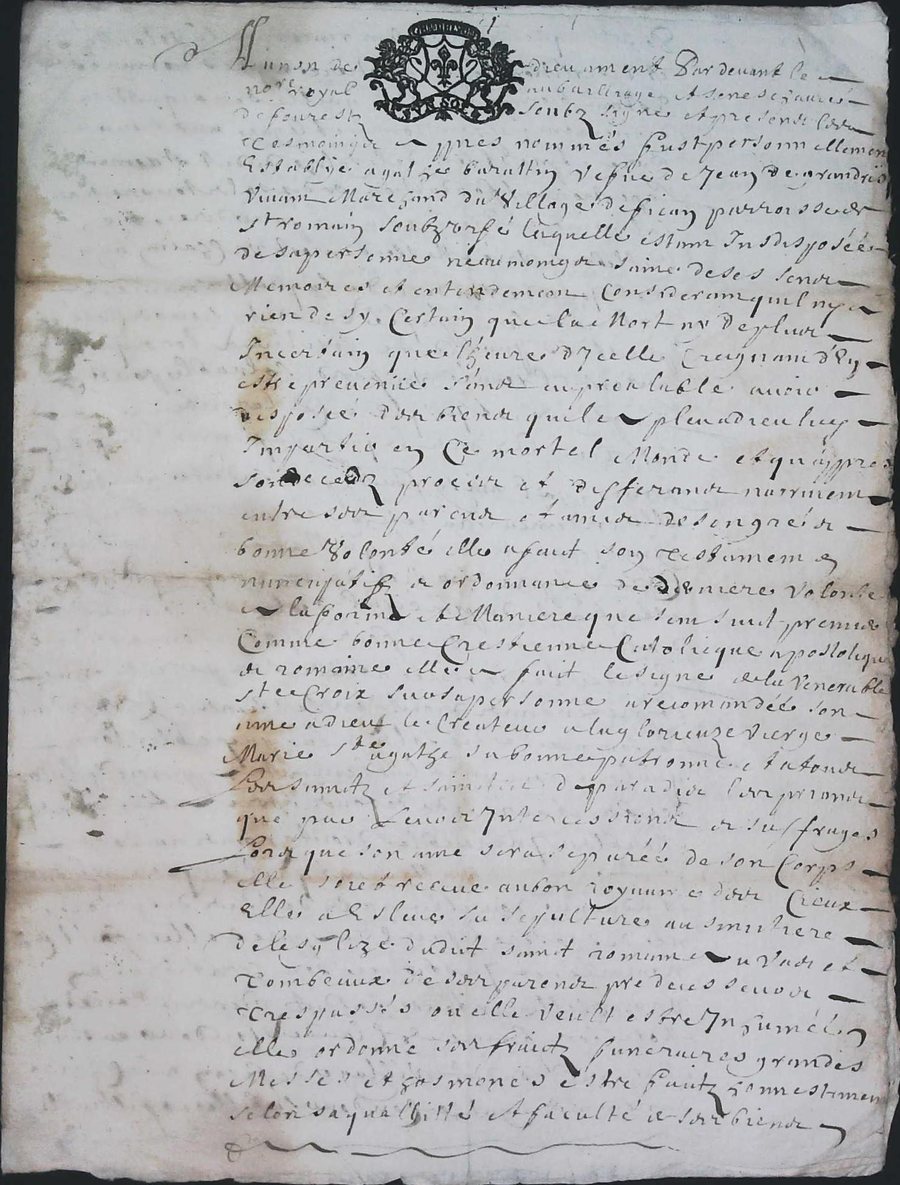 Au nom de dieu ament Par devant le
no.re royal au bailliage et senesechaucé
de fourestz soubz signe et presens les
tesmoings appres nommés fust personnellement
Establye agathe barallin vefve de Jean De grandris
vivant Marchand du Village de fican parroisse de
st romain soubz laquelle estant Indisposée
de sa personne neaumoingz saine de ses sens
Memoires et entendement Considerant quil ny a
rien de sy Certain que la Mort ny de plus
Incertain que lheure d'Icelle Craignant d'En
estre prevenüe sans au prealable avoir
disposée des biens quil a pleu a dieu luy
Impartir en Ce mortel Monde et qu'appres
son deceds proces et differans narrivient
entre ses parens et amis de son gré &
bonne Volonté elle a fait son Testament
nuncupatif & ordonnance de derniere volonte
a la forme et Maniere que sensuit premier
Comme bonne Crestienne Catolicque apostolique
& romaine elle a fait le signe de la Venerable
ste Croix sur sa personne a recomandée son
ame a dieu le Createur a la glorieuze vierge
Marie ste agathe sa bonne patronne et a tous
les saintz et saintes de paradis les priant
que par Leurs Intercessions & suffrages
Lors que son ame sera separée de son Corps
elle soict receue au bon royaume des Cieux
Elle a Eslue sa sepulture au simitiere
de lesglize dudit sainct romain a vas et
Tombeaux de ses parens predecesseurs
Trespassés ou elle veult estre Inhumée
elle ordonne ses fraictz funeraires grandes
Messes et aosmones estre faitz honnestement
selon sa quallitté et faculté de ses biens